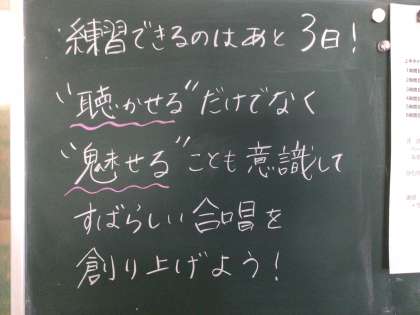 練習できるのはあと3日!
"聴かせる"だけでなく
"魅せる"ことも意識して
すばらしい合唱を
創り上げよう!